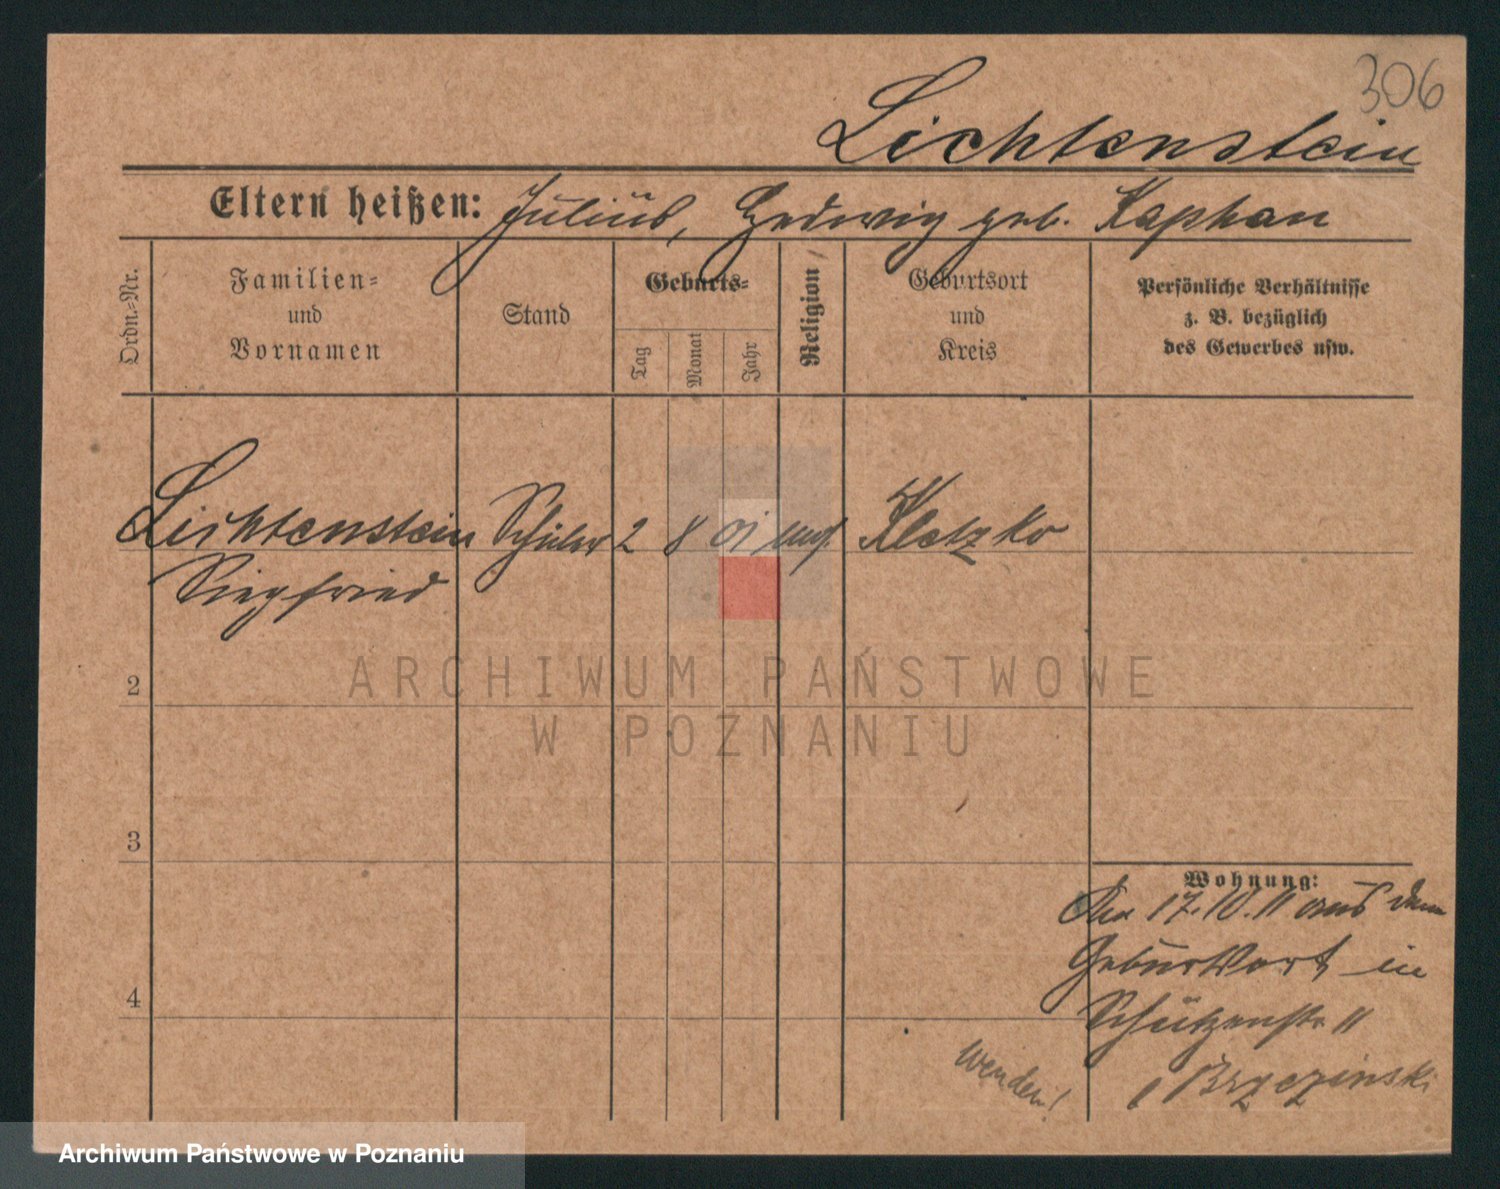 306
Lichtenstein
Eltern heißen: Julius, Hedwig geb. Kaphan
Ordn.-Nr.
Familien-
und
Vornamen
Stand
Geburts-
Tag
Monat
Jahr
Religion
Geburtsort
und
Kreis
Persönliche Verhältnisse
z. B. bezüglich
des Gewerbes usw.
Lichtenstein Schüler 2 8 01 Kletzko
Siegfried
2
3
4
Wohnung:
17.10.11 aus dem
Geburtsort in
Schützenstr. 11
Brzezinski
wenden!
ARCHIWUM PAŃSTWOWE
W POZNANIU
Archiwum Państwowe w Poznaniu